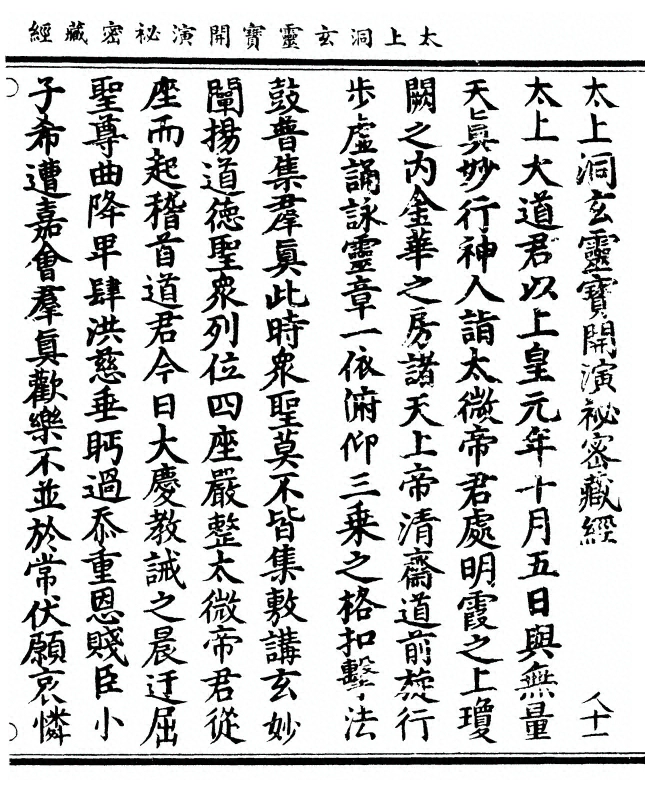 太上洞玄靈寶開演祕密藏經
太上洞玄靈寶開演祕密藏經
八十一
太上大道君以上皇元年十月五日與無量
天眞妙行神人詣太微帝君處明霞之上瓊
闕之內金華之房諸天上帝清齋道前旋行
步虛誦詠靈章一依俯仰三乗之格扣擊法
鼓普集羣眞此時衆聖莫不皆集敷講玄妙
闡揚道德聖衆列位四座嚴整太微帝君從
座而起稽首道君今日大慶教誡之晨迂屈
聖尊曲降卑肆洪慈垂眄過忝重恩賤臣小
子希遭嘉會羣眞歡樂不並於常伏願哀憐